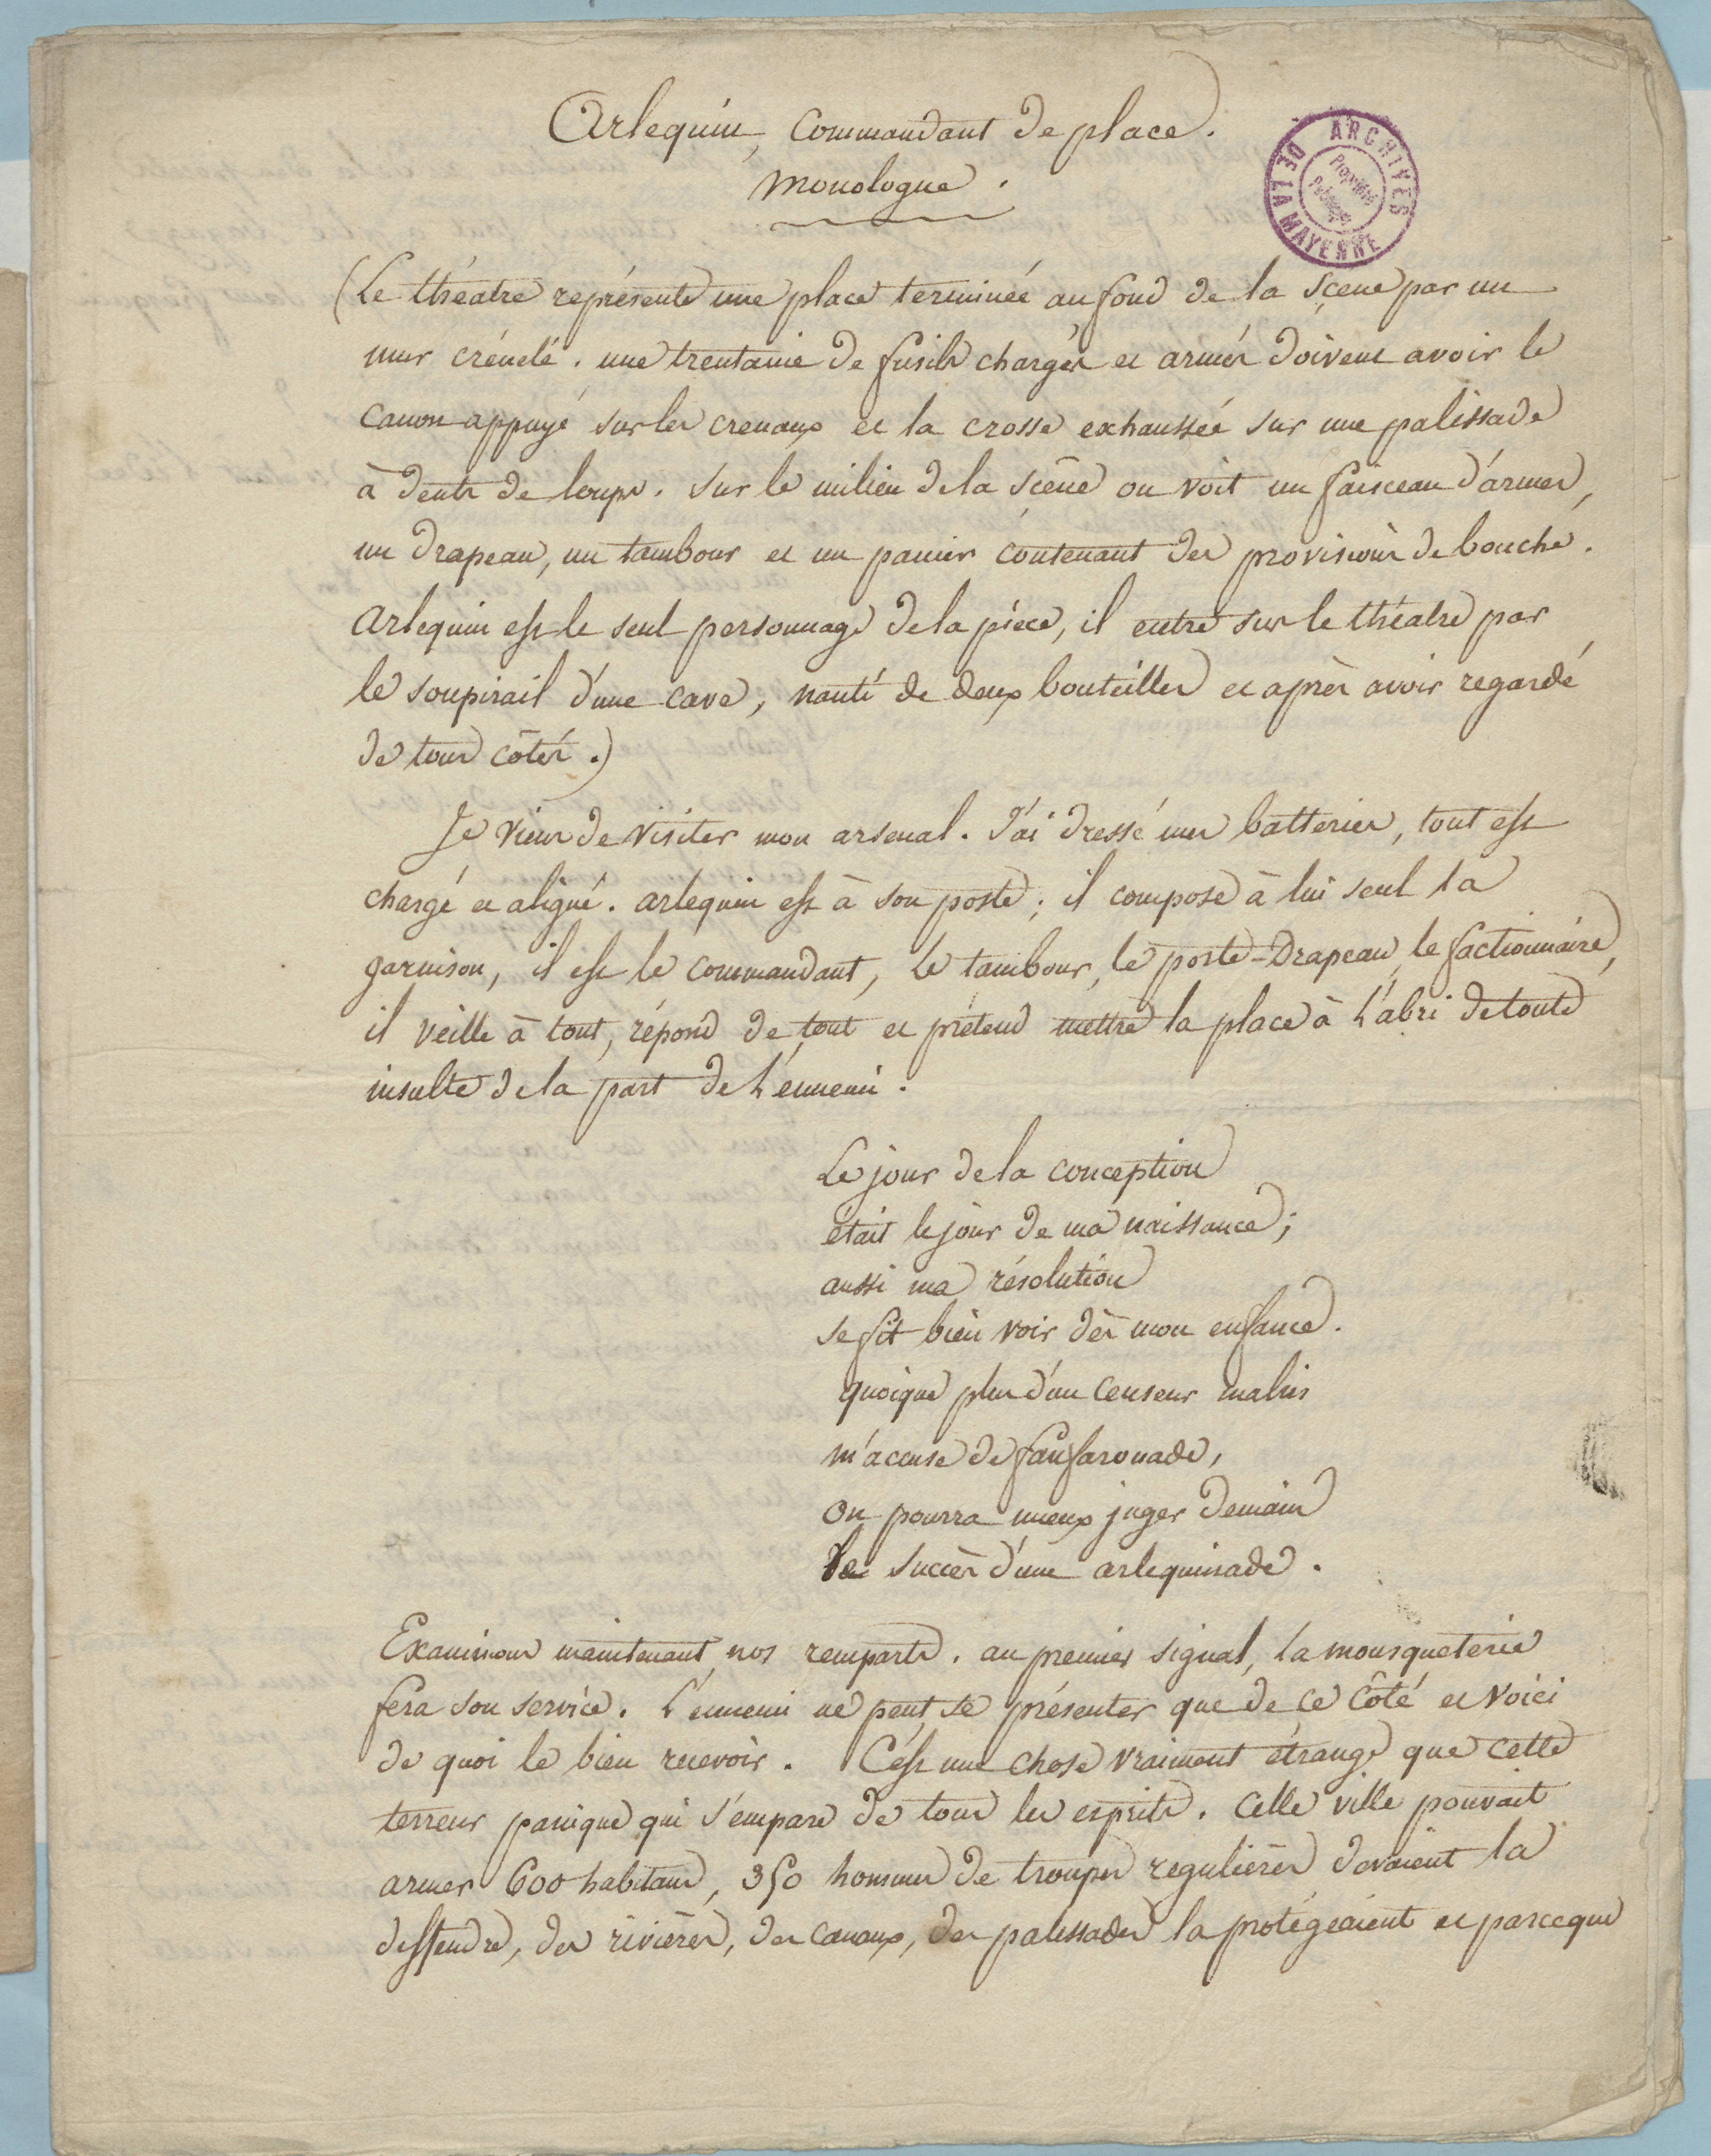 Arlequin, Commandant de place.
Monologue.
ARCHIVES DE LA MAYENNE
Propriété Publique
(Le théatre représente une place terminée au fond de la scene par un
mur crénelé. une trentaine de fusils chargés et armés doivent avoir le
canon appuyé sur les crenaux et la crosse exhaussée sur une palissade
à dents de loups. sur le milieu de la scêne on voit un faisceau d'armes,
un drapeau, un tambour et un panier contenant des provisions de bouche.
arlequin est le seul personnage de la piéce, il entre sur le théatre par
le soupirail d'une cave, nanti de deux bouteilles et après avoir regardé
de tous côtés.)
Je viens de visiter mon arsenal. J'ai dressé mes batteries, tout est
chargé et aligné. arlequin est à son poste; il compose à lui seul la
garnison, il est le commandant, le tambour, le porte-Drapeau, le factionnaire,
il veille à tout, répond de tout et prétend mettre la place à l'abri de toute
insulte de la part de l'ennemi.
Le jour de la conception
était le jour de ma naissance;
aussi ma résolution
se fit bien voir dès mon enfance.
quoique plus d'un censeur malin
m'accuse de fanfaronade,
on pourra mieux juger demain
le succès d'une arlequinade.
Examinons maintenant nos remparts. au premier signal, la mousqueterie
fera son service. l'ennemi ne peut se présenter que de ce côté et voici
de quoi le bien recevoir. C'est une chose vraiment étrange que cette
terreur panique qui s'empare de tous les esprits. Celle ville pouvait
armer 600 habitans, 350 hommes de troupes regulières devaient la
deffendre, des rivières, des canaux, des palissades la protégeaient et parceque